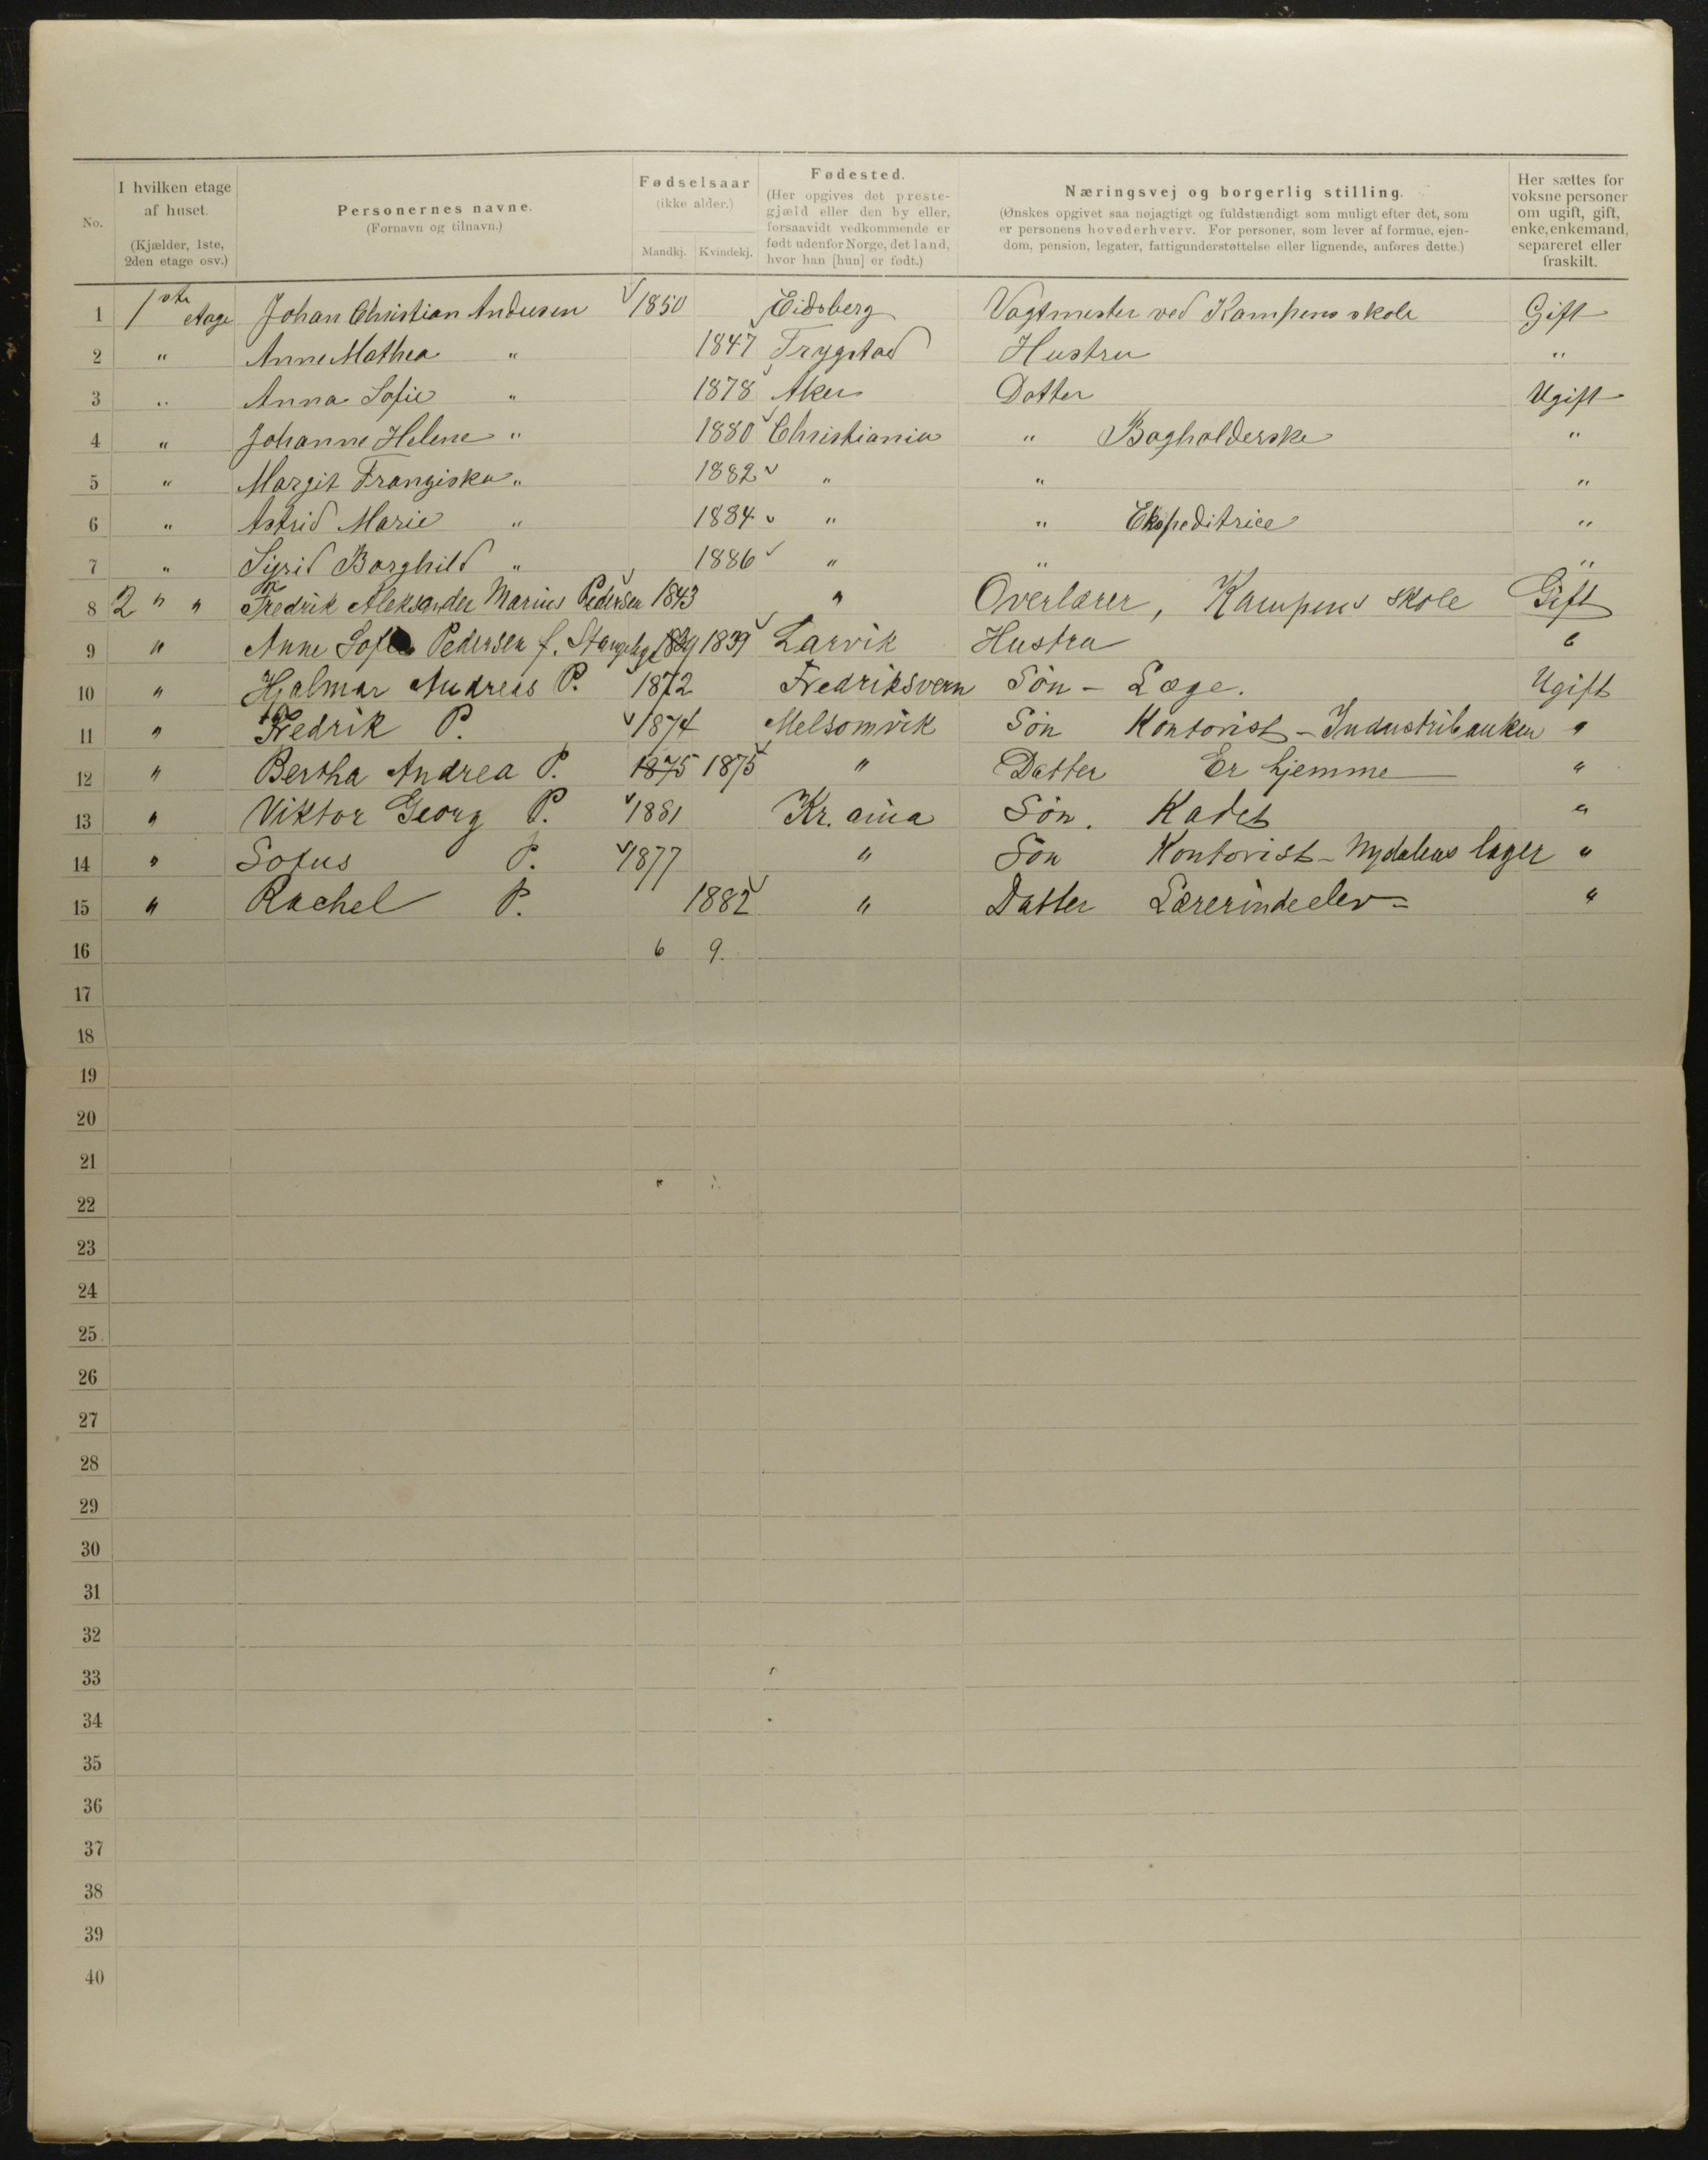 No. I hvilken etage af huset. (Kjælder, 1ste, 2den etage osv.) Personernes navne. (Fornavn og tilnavn.) Fødselsaar (ikke alder.) Mandkj. Kvindekj. Fødested. (Her opgives det prestegjæld eller den by eller, forsaavidt vedkommende er født udenfor Norge, det land, hvor han [hun] er født.) Næringsvej og borgerlig stilling. (Ønskes opgivet saa nøjagtigt og fuldstændigt som muligt efter det, som er personens hovederhverv. For personer, som lever af formue, ejendom, pension, legater, fattigunderstøttelse eller lignende, anføres dette.) Her sættes for voksne personer om ugift, gift, enke, enkemand, separeret eller fraskilt.
1 1ste etage Johan Christian Andersen 1850 Eidsberg Vagtmester ved Kampens skole Gift
2 " Anne Mathea " 1847 Trygstad Hustru "
3 " Anna Sofie " 1878 Aker Datter Ugift
4 " Johanne Helene " 1880 Christiania " Bogholderske "
5 " Margit Frangiska " 1882 " " "
6 " Astrid Marie " 1884 " " Ekspeditrice "
7 " Sigrid Borghild " 1886 " " "
8 2 " " Fredrik Aleksander Marius Pedersen 1843 " Overlærer, Kampens skole Gift
9 " Anne Sofie Pedersen f. 1839 1839 Larvik Hustru "
10 " Hjalmar Andreas P. 1872 Fredriksvern Søn – Læge. Ugift
11 " Fredrik P. 1874 Melsomvik Søn Kontorist – Industribanken "
12 " Bertha Andrea P. 1875 1875 " Datter Er hjemme "
13 " Viktor Georg P. 1881 Kr.ania Søn. Kadet "
14 " Sofus P. 1877 " Søn Kontorist – Nydalens lager "
15 " Rachel P. 1882 " Datter Lærerindeelev "
16 6 9.
17
18
19
20
21
22
23
24
25
26
27
28
29
30
31
32
33
34
35
36
37
38
39
40